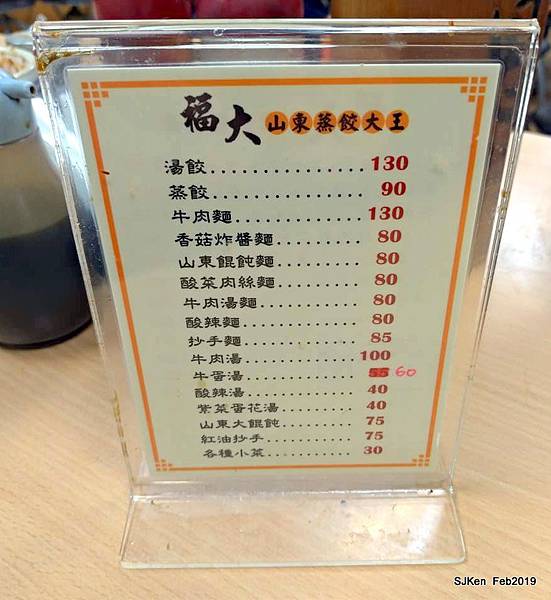 福大 山東蒸餃大王
湯餃................130
蒸餃................90
牛肉麵..............130
香菇炸醬麵.........80
山東餛飩麵.........80
酸菜肉絲麵.........80
牛肉湯麵...........80
酸辣麵.............80
抄手麵.............85
牛肉湯............100
牛蛋湯............55 60
酸辣湯............40
紫菜蛋花湯.........40
山東大餛飩.........75
紅油抄手...........75
各種小菜...........30
SJKen Feb2019